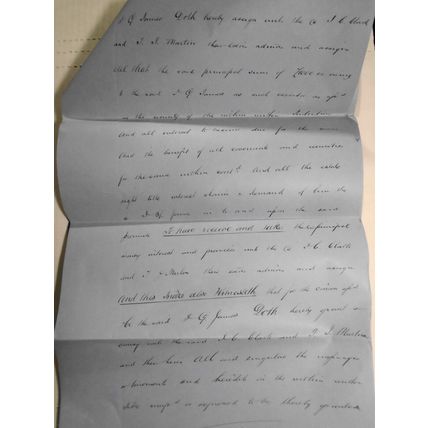 J G James Doth hereby assign unto the sd J C Clark
and T J Martin their exors admors and assigns
All that the said principal sum of £200 so owing
to the said J G James as such executor as afsd
on the security of the within written Indenture
And all interest to become due for the same
And the benefit of all covenants and securities
for the same within contd And all the estate
right title interest claim & demand of him the
sd J G James in to and upon the said
premises To have receive and take the sd principal
money interest and premises unto the sd J C Clark
and T J Martin their exors admors and assigns
And this Indre also Witnesseth that for the conson afsd
he the said J G James Doth hereby grant and
convey unto the said J C Clark and T J Martin
and their heirs All and singular the messuages
tenements and heredits in the within written
Indre mentd or expressed to be thereby granted